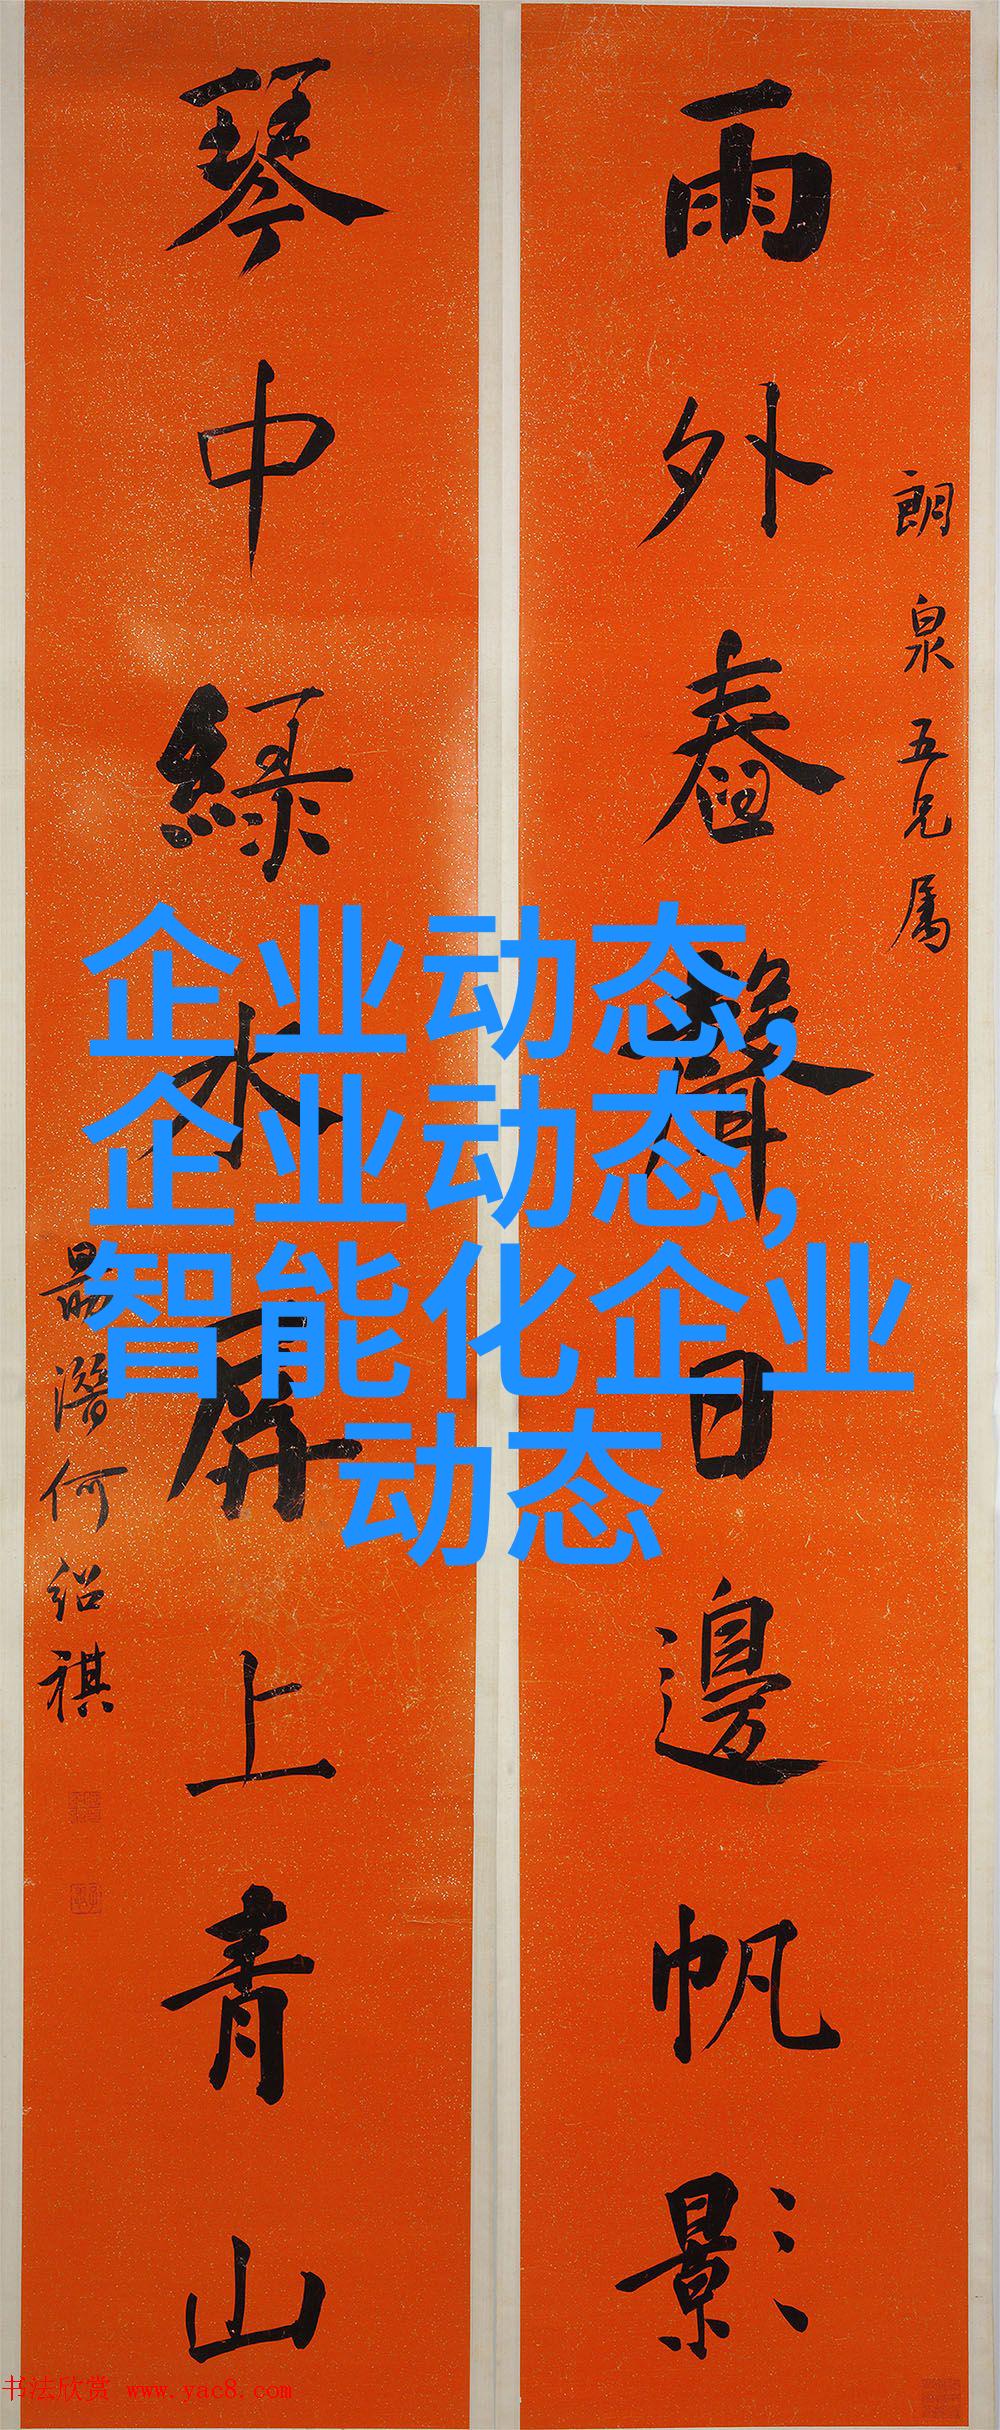 雨外舂聲日邊帆影
朗泉五兄属
琴中綠水屏上青山
勗潛何紹祺
企业动态,
企业动态,
智能化企业
动态
书法欣赏 www.yac8.com